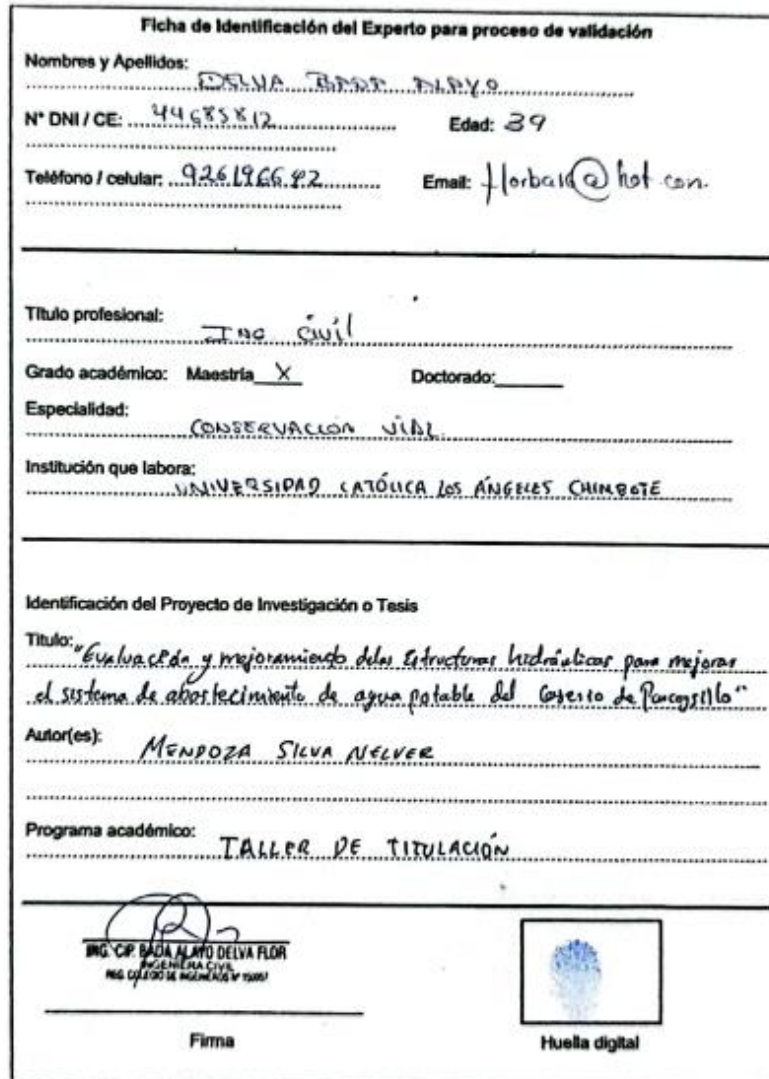 Ficha de Identificación del Experto para proceso de validación
Nombres y Apellidos:
DELVA BADA ALAYO
N° DNI / CE: 44685812 Edad: 39
Teléfono / celular: Email:
Título profesional:
Ing Civil
Grado académico: Maestría X Doctorado:
Especialidad:
CONSERVACION VIAL
Institución que labora:
UNIVERSIDAD CATÓLICA LOS ÁNGELES CHIMBOTE
Identificación del Proyecto de Investigación o Tesis
Titulo: "Evaluación y mejoramiento delas Estructuras hidráulicas para mejorar
el sistema de abastecimiento de agua potable del Caserio de
Autor(es):
MENDOZA SILVA NELVER
Programa académico:
TALLER DE TITULACIÓN
ING. CIP. BADA ALAYO DELVA FLOR
INGENIERA CIVIL
REG. COLEGIO DE INGENIEROS N°
Firma
Huella digital